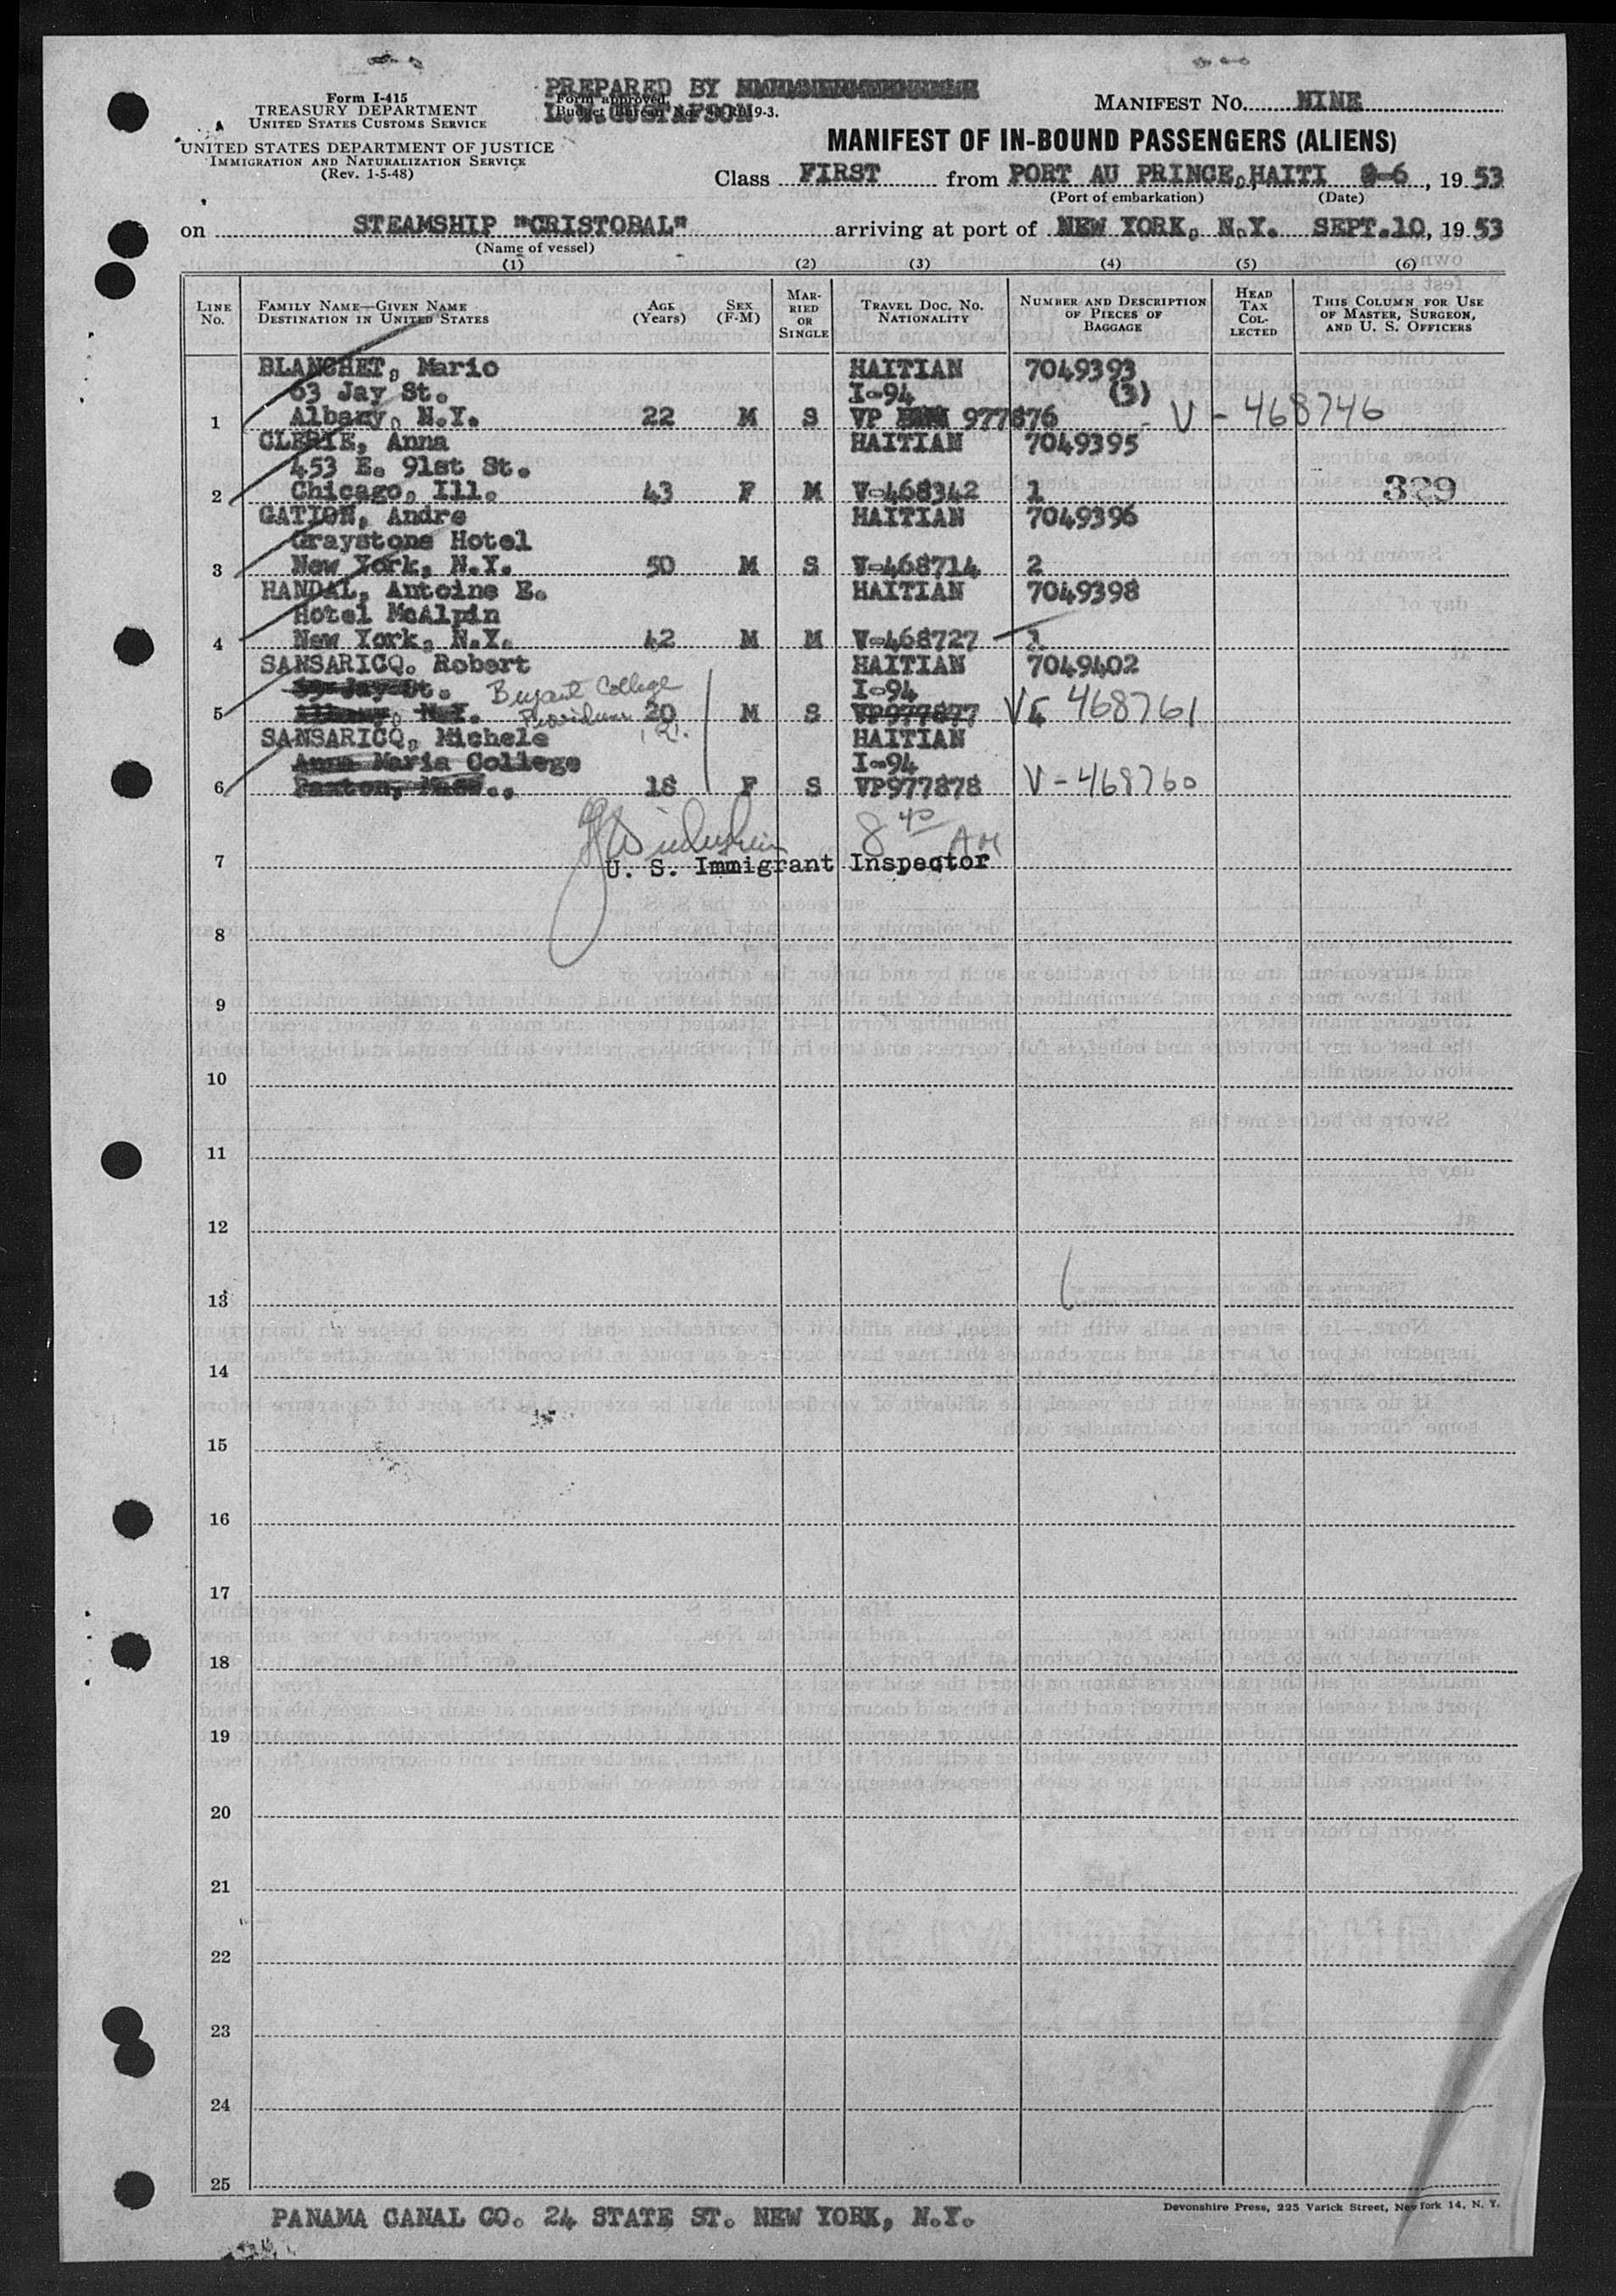 Form I-415
TREASURY DEPARTMENT
UNITED STATES CUSTOMS SERVICE
UNITED STATES DEPARTMENT OF JUSTICE
IMMIGRATION AND NATURALIZATION SERVICE
(Rev. 1-5-48)
PREPARED BY
Form approved.
L. N. GUSTAFSON
MANIFEST NO. NINE
MANIFEST OF IN-BOUND PASSENGERS (ALIENS)
Class FIRST from PORT AU PRINCE, HAITI 9-6, 19 53
(Port of embarkation) (Date)
on STEAMSHIP "CRISTOBAL" arriving at port of NEW YORK, N.Y. SEPT.10, 19 53
(Name of vessel)
(1) (2) (3) (4) (5) (6)
LINE NO. FAMILY NAME—GIVEN NAME DESTINATION IN UNITED STATES AGE (Years) SEX (F-M) MARRIED OR SINGLE TRAVEL DOC. NO. NATIONALITY NUMBER AND DESCRIPTION OF PIECES OF BAGGAGE HEAD TAX COLLECTED THIS COLUMN FOR USE OF MASTER, SURGEON, AND U. S. OFFICERS
BLANCHET, Mario HAITIAN 7049393
63 Jay St. I-94 (3)
1 Albany, N.Y. 22 M S VP 977876 V-468746
CLERIE, Anna HAITIAN 7049395
453 E. 91st St.
2 Chicago, Ill. 43 F M V-468342 1 329
GATION, Andre HAITIAN 7049396
Graystone Hotel
3 New York, N.Y. 50 M S V-468714 2
HANDAL, Antoine E. HAITIAN 7049398
Hotel McAlpin
4 New York, N.Y. 42 M M V-468727 1
SANSARICQ. Robert HAITIAN 7049402
Jay St. Bryant College I-94
5 Albany, N.Y. Providence 20 M S VP977877 V 468761
SANSARICQ, Michele R.I. HAITIAN
Anna Maria College I-94
6 Paxton, Mass., 18 F S VP977878 V-468760
8 40 AM
7 U. S. Immigrant Inspector
8
9
10
11
12
13
14
15
16
17
18
19
20
21
22
23
24
25
PANAMA CANAL CO. 24 STATE ST. NEW YORK, N.Y.
Devonshire Press, 225 Varick Street, New York 14, N. Y.